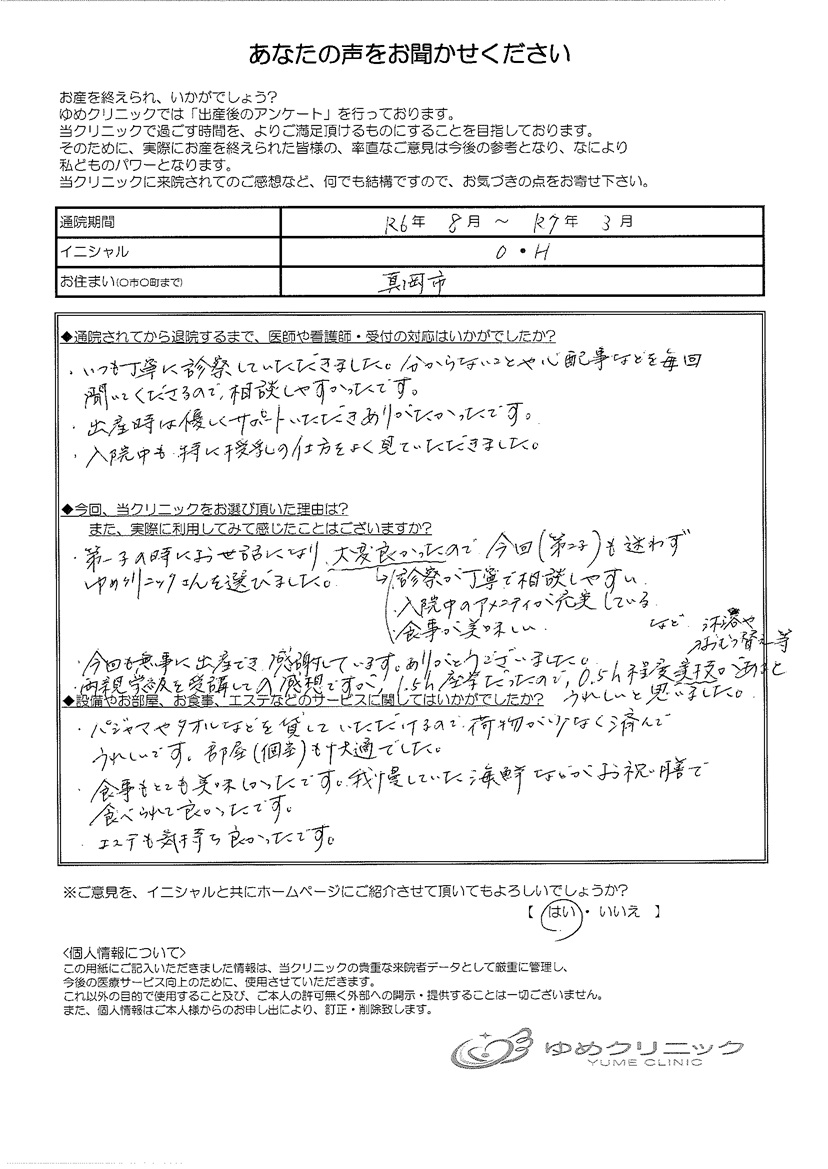 あなたの声をお聞かせください
お産を終えられ、いかがでしょう?
ゆめクリニックでは「出産後のアンケート」を行っております。
当クリニックで過ごす時間を、よりご満足頂けるものにすることを目指しております。
そのために、実際にお産を終えられた皆様の、率直なご意見は今後の参考となり、なにより
私どものパワーとなります。
当クリニックに来院されてのご感想など、何でも結構ですので、お気づきの点をお寄せ下さい。
通院期間 R6年 8月 ~ R7年 3月
イニシャル O・H
お住まい(○市○町まで) 真岡市
◆通院されてから退院するまで、医師や看護師・受付の対応はいかがでしたか?
・いつも丁寧に診察していただきました。分からないことや心配事などを毎回
聞いてくださるので、相談しやすかったです。
・出産時は優しくサポートいただきありがたかったです。
・入院中も特に授乳の仕方をよく見ていただきました。
◆今回、当クリニックをお選び頂いた理由は?
また、実際に利用してみて感じたことはございますか?
・第一子の時にお世話になり、大変良かったので今回(第二子)も迷わず
ゆめクリニックさんを選びました。
↳・診察が丁寧で相談しやすい
・入院中のアメニティが充実している
・食事が美味しい など
・今回も無事に出産でき感謝しています。ありがとうございました。
沐浴や
おむつ替え等
・両親学級を受講しての感想ですが、1.5h座学だったので、0.5h程度実技があると
うれしいと思いました。
◆設備やお部屋、お食事、エステなどのサービスに関してはいかがでしたか?
・パジャマやタオルなどを貸していただけるので、荷物が少なく済んで
うれしいです。部屋(個室)も快適でした。
・食事もとても美味しかったです。我慢していた海鮮などがお祝い膳で
食べられて良かったです。
・エステも気持ち良かったです。
※ご意見を、イニシャルと共にホームページにご紹介させて頂いてもよろしいでしょうか?
【 はい ・ いいえ 】
<個人情報について>
この用紙にご記入いただきました情報は、当クリニックの貴重な来院者データとして厳重に管理し、
今後の医療サービス向上のために、使用させていただきます。
これ以外の目的で使用すること及び、ご本人の許可無く外部への開示・提供することは一切ございません。
また、個人情報はご本人様からのお申し出により、訂正・削除致します。
ゆめクリニック
YUME CLINIC